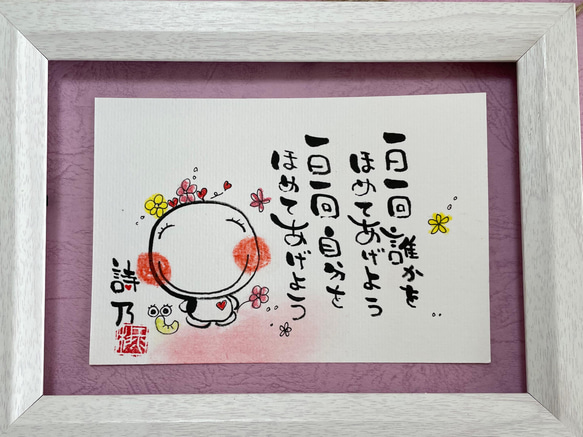 一日一回誰かを
ほめてあげよう
一日一回自分を
ほめてあげよう
詩乃